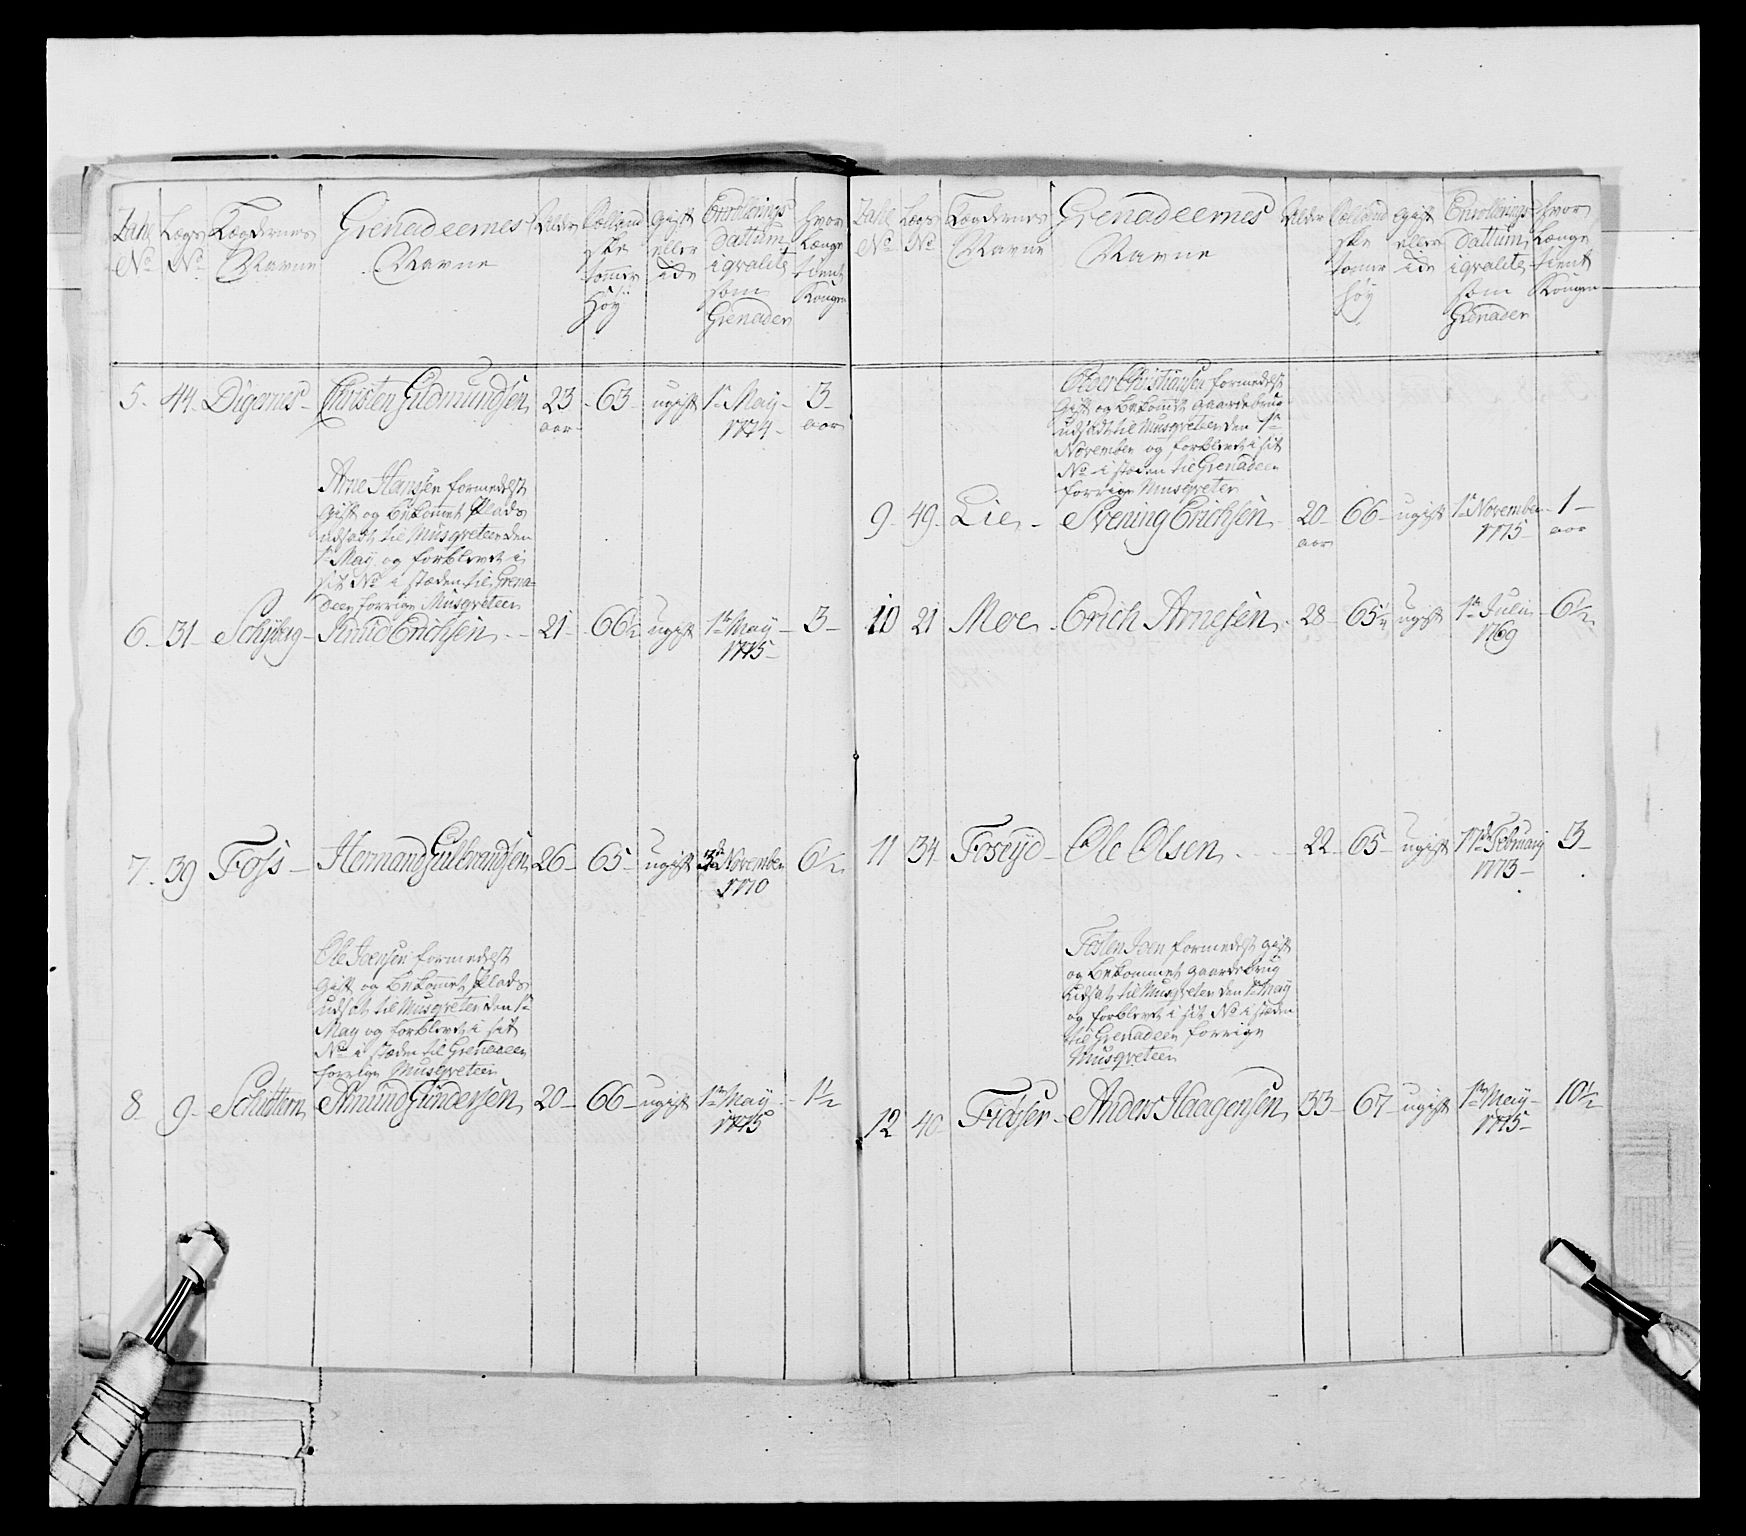 Tahl No
Lægs No
Lægdernes Navne
Grenadeernes Navne
Alder
Sællandske tomer Høy
Gift eller ide
Enrollerings dattum i qvalite som Grenader
Hvor Længe tient Kongen
5. 44. Digernes Christen Gudmundsen 23 aar 63 ugift 1te May 1774 3 aar
Arne Hansen formedelst
Gift og bekommet Plads
udsadt til Musqveteer den
1te May og forblevet i
sit No i stæden til Grena-
deer forrige Musqveteer
6 31 Schyberg Knud Erichsen 21 66½ ugift 1te May 1775 3
7. 39 Foss Hermand Gulbrandsen 26 65 ugift 3de November 1770 6½
Ole Joensen formedelst
Gift og Bekommet Plads
udsat til Musqveter den 1te
May og forblevet i sit
No i stæden til Grenadeer
forrige Musqveteer
8 9 Schuttern Amund Gundersen 20 66 ugift 1te May 1775 1½
Tahl No
Lægs No
Lægdernes Navne
Grenadeernes Navne
Alder
Sællandske tomer høy
Gift eller ide
Enrollerings Dattum i qvalite som Grenader
Hvor Længe tient Kongen
Christiansen formedelst
Gift og bekommet Gaardebrug
udsadt til Musqveteer den 1te
November og forblevet i sit
No i stæden til Grenadeer
forrige Musqveter
9 49 Lie Svening Erichsen 20 aar 66 ugift 1te November 1775 1 aar
10 21 Moe Erich Arnesen 28 65¼ ugift 1te Julii 1769 6½
11 34 Foseyd Ole Olsen 22 65 ugift 17de Februarij 1773 3
Tosten Joen formedelst gift
og bekommet gaardebrug
udsat til Musqveter den 1te May
og forblevet i sit No i stæden
til Grenadeer forrige
Musqveteer
12 40 Fidser Anders Haagensen 33 67 ugift 1te May 1775 10½